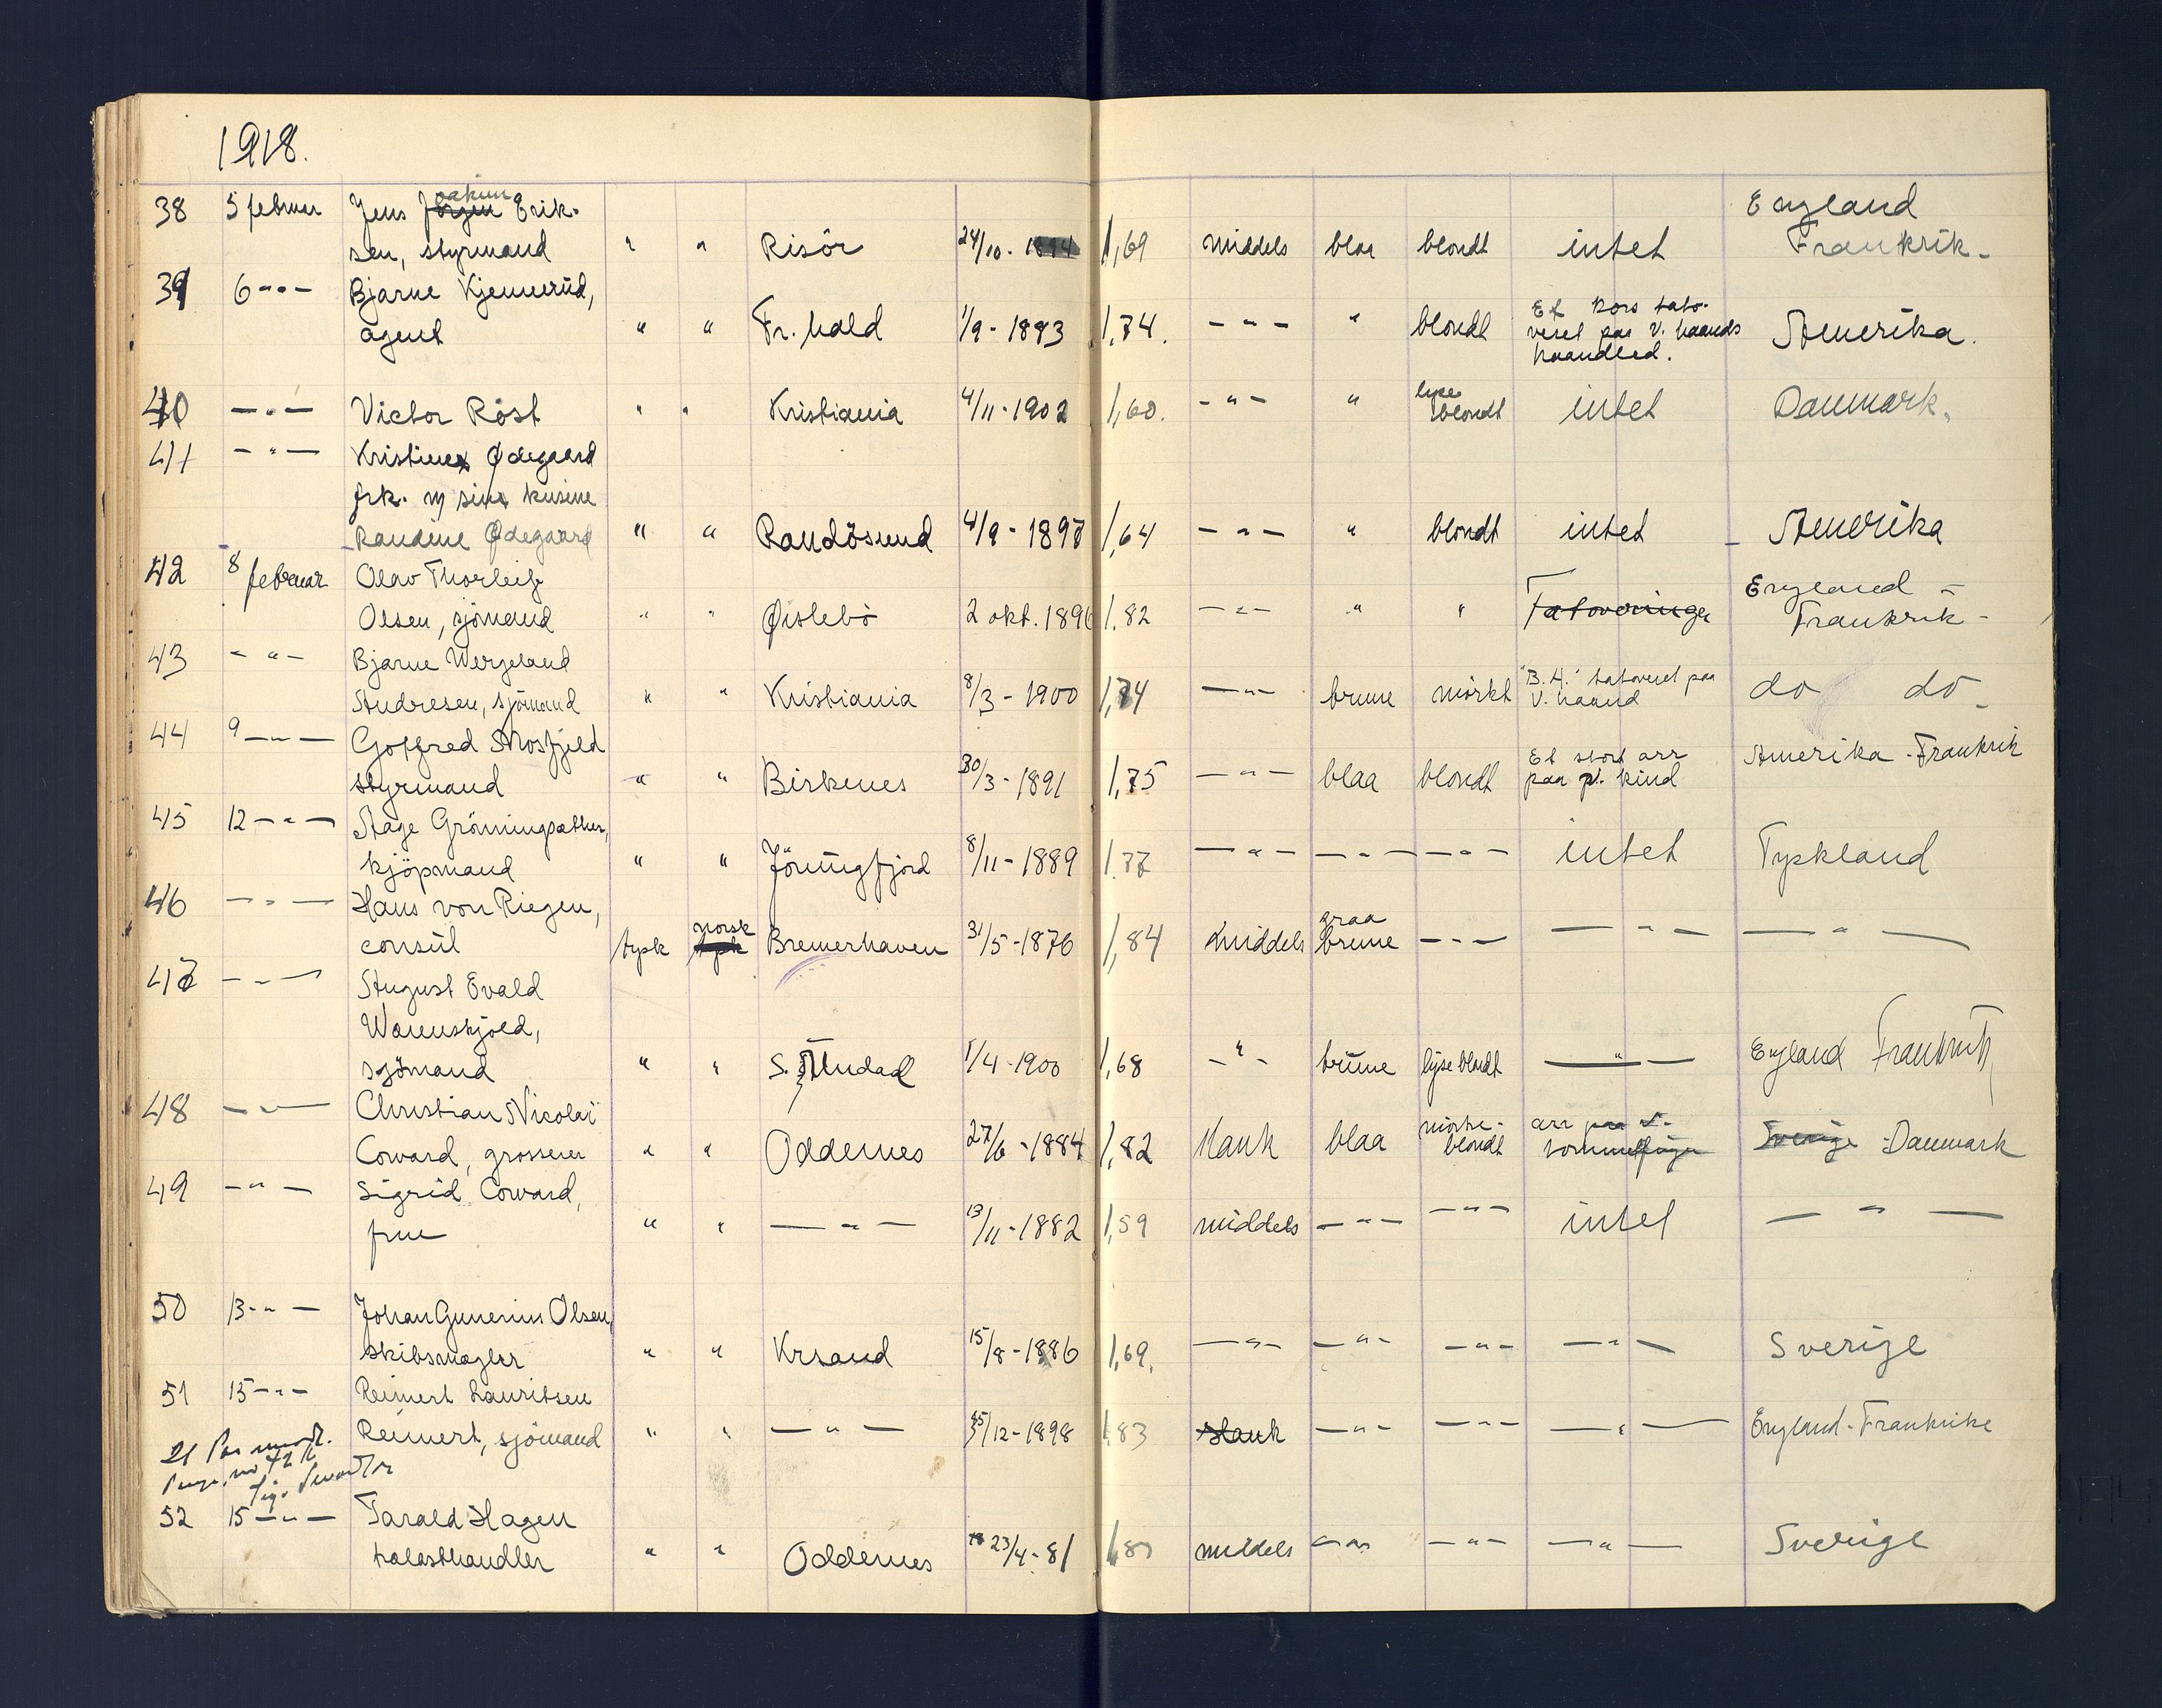 1918.
38 5 februar Jens Joakim Erik-
sen, styrmand " " Risör 24/10 - 1894 1,69 middels blaa blondt intet England Frankrik -
39 6 - " - Bjarne Kjennerud,
agent " " Fr. hald 1/9 - 1883 1,74. - " - " blondt Et kors tato-
veret paa v. haands
haandled. Amerika.
40 - " - Victor Röst " " Kristiania 4/11 - 1902 1,60. - " - " lyse
blondt intet Danmark.
41 - " - Kristine Ødegaard
frk. m sin kusine
Randine Ødegaard " " Randösund 4/9 - 1897 1,64 - " - " blondt intet - Amerika
42 8 februar Olav Thorleif
Olsen, sjömand " " Øislebö 2 okt. 1896 1,82 - " - " " Tatoveringer England -
Frankrik -
43 - " - Bjarne Wergeland
Andresen, sjömand " " Kristiania 8/3 - 1900 1,74 - " - brune mörkt "B. A." tatoveret paa
v. haand do do -
44 9 - " - Goffred Mosfjeld
styrmand " " Birkenes 30/3 - 1891 1,75 - " - blaa blondt Et stort arr
paa v. kind Amerika - Frankrik
45 12 - " - Aage Grönningsæther,
kjöpmand " " Jöringfjord 8/11 - 1889 1,77 - " - - " - - " - intet Tyskland
46 - " - Hans von Riegen,
consul tysk norsk Bremerhaven 31/5 - 1876 1,84 middels graa
brune - " - - " - - " -
47 - " - August Evald
Warenskjold,
sjömand " " S. Undal 1/4 - 1900 1,68 - " - brune lyse blondt - " - England Frankrik
48 - " - Christian Nicolai
Coward, grosserer " " Oddernes 27/6 - 1884 1,82 slank blaa mörke-
blondt arr paa v.
tommelfinger Sverige - Danmark
49 - " - Sigrid Coward,
frue " " - " - 13/11 - 1882 1,59 middels - " - - " - intet - " -
50 13 - " - Johan Gunerius Olsen,
skibsmægler " " Krsand 15/8 - 1886 1,69. - " - - " - - " - - " - Sverige
51 15 - " - Reinert Lauritsen
Reinert, sjömand " " - " - 25/12 - 1898 1,83 slank - " - - " - - " - England - Frankrike
52 15 - " - Tarald Hagen
trælasthandler " " Oddernes 23/4 - 81 1,80 middels - " - - " - - " - Sverige